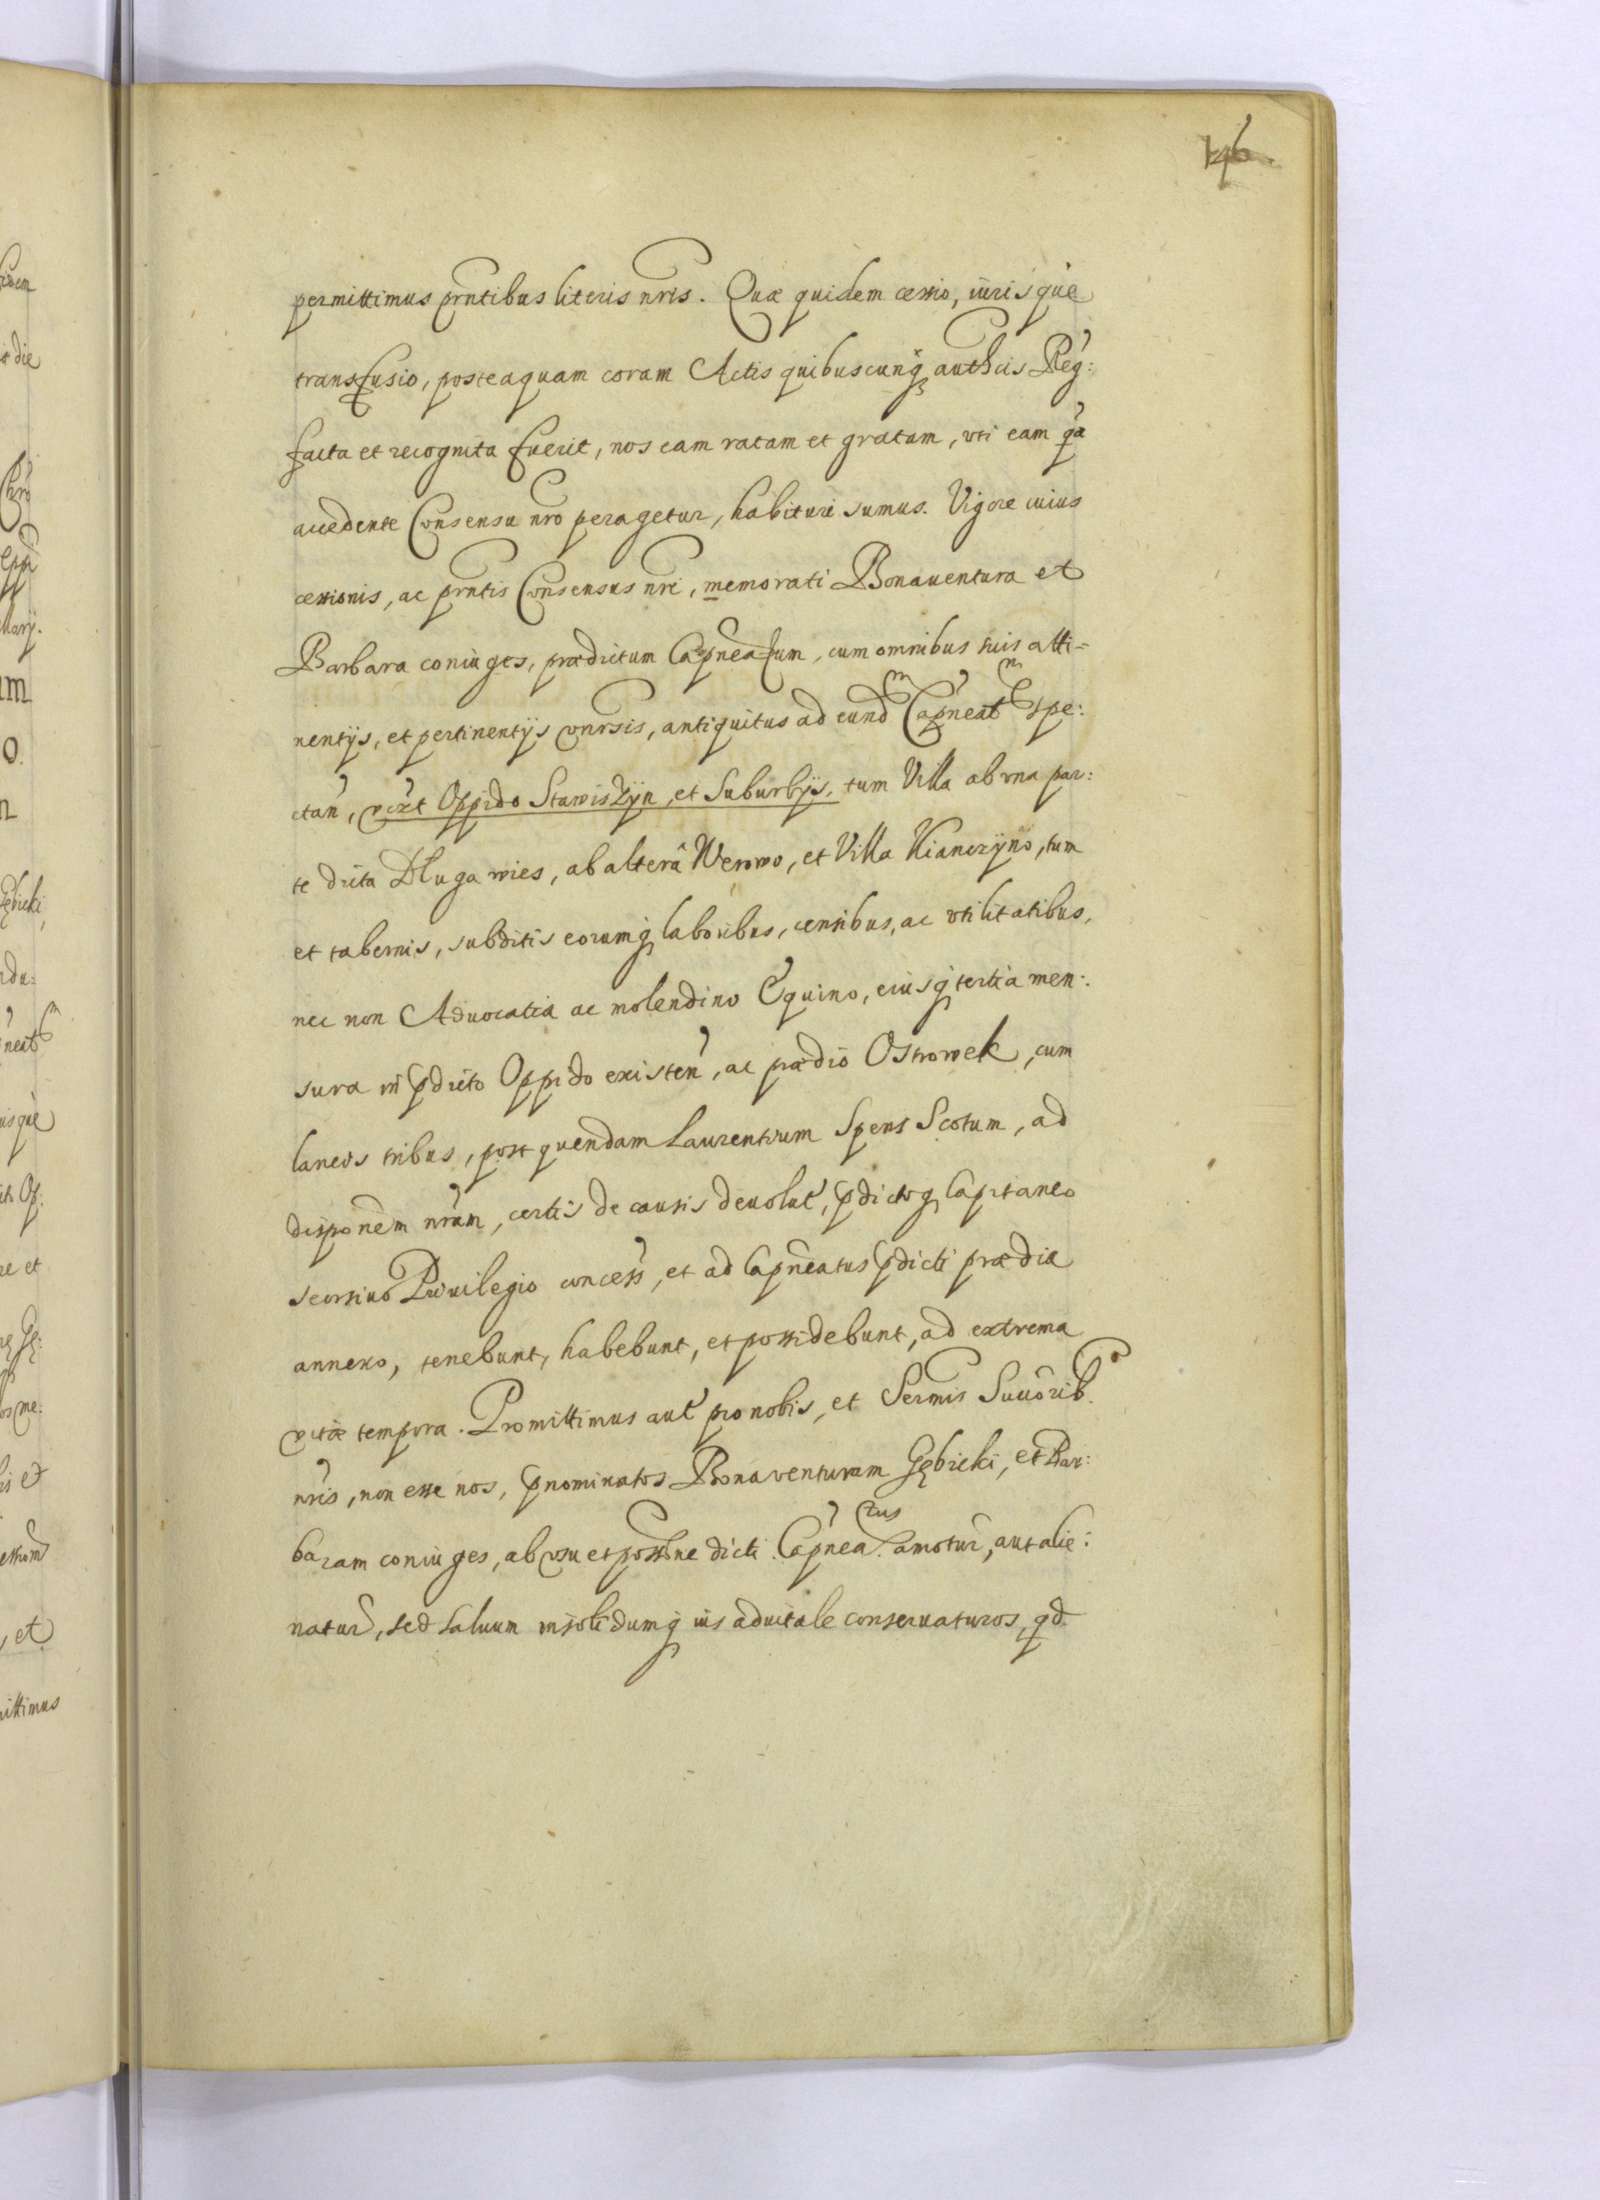 146
permittimus prntibus literis nris. Quæ quidem cessio, iuris què
transfusio, posteaquam coram Actis quibuscunq authcis Reg:
facta et recognita fuerit, nos eam ratam et gratam, uti eam qa
accedente Consensu nro peragetur, habituri sumus. Vigore cuius
cessionis, ac prntis Consensus nri, memorati Bonauentura et
Barbara coniuges, prædictum Capneatum, cum omnibus suis atti=
nentijs, et pertinentijs vnrsis, antiquitus ad eundm Capneatm spe:
ctan, vizt Oppido Stawiszyn, et Suburbijs, tum Villa ab vna par:
te dicta Długa wies, ab alterâ Werowo, et Villa Kianczyno, tum
et tabernis, subditis eorumq laboribus, censibus, ac vtilitatibus,
nec non Aduocatia ac molendino Equino, eiusq tertia men:
sura in pdicto Oppido existen, ac prædio Ostrowek, cum
laneis tribus, post quendam Laurentium Spens Scotum, ad
disponem nram, certis de causis deuolut, pdictoq Capitaneo
seorsiuo Priuilegio concess, et ad Capneatus pdicti prædia
annexo, tenebunt, habebunt, et possidebunt, ad extrema
vitæ tempora. Promittimus aut pro nobis, et Sermis Succorib.
nris, non esse nos, pnominatos Bonaventuram Gębicki, et Bar:
baram coniuges, ab vsu et possne dicti Capneatus amotur, aut alie:
natur, sed saluum insolidumq ius aduitale conseruaturos, qd